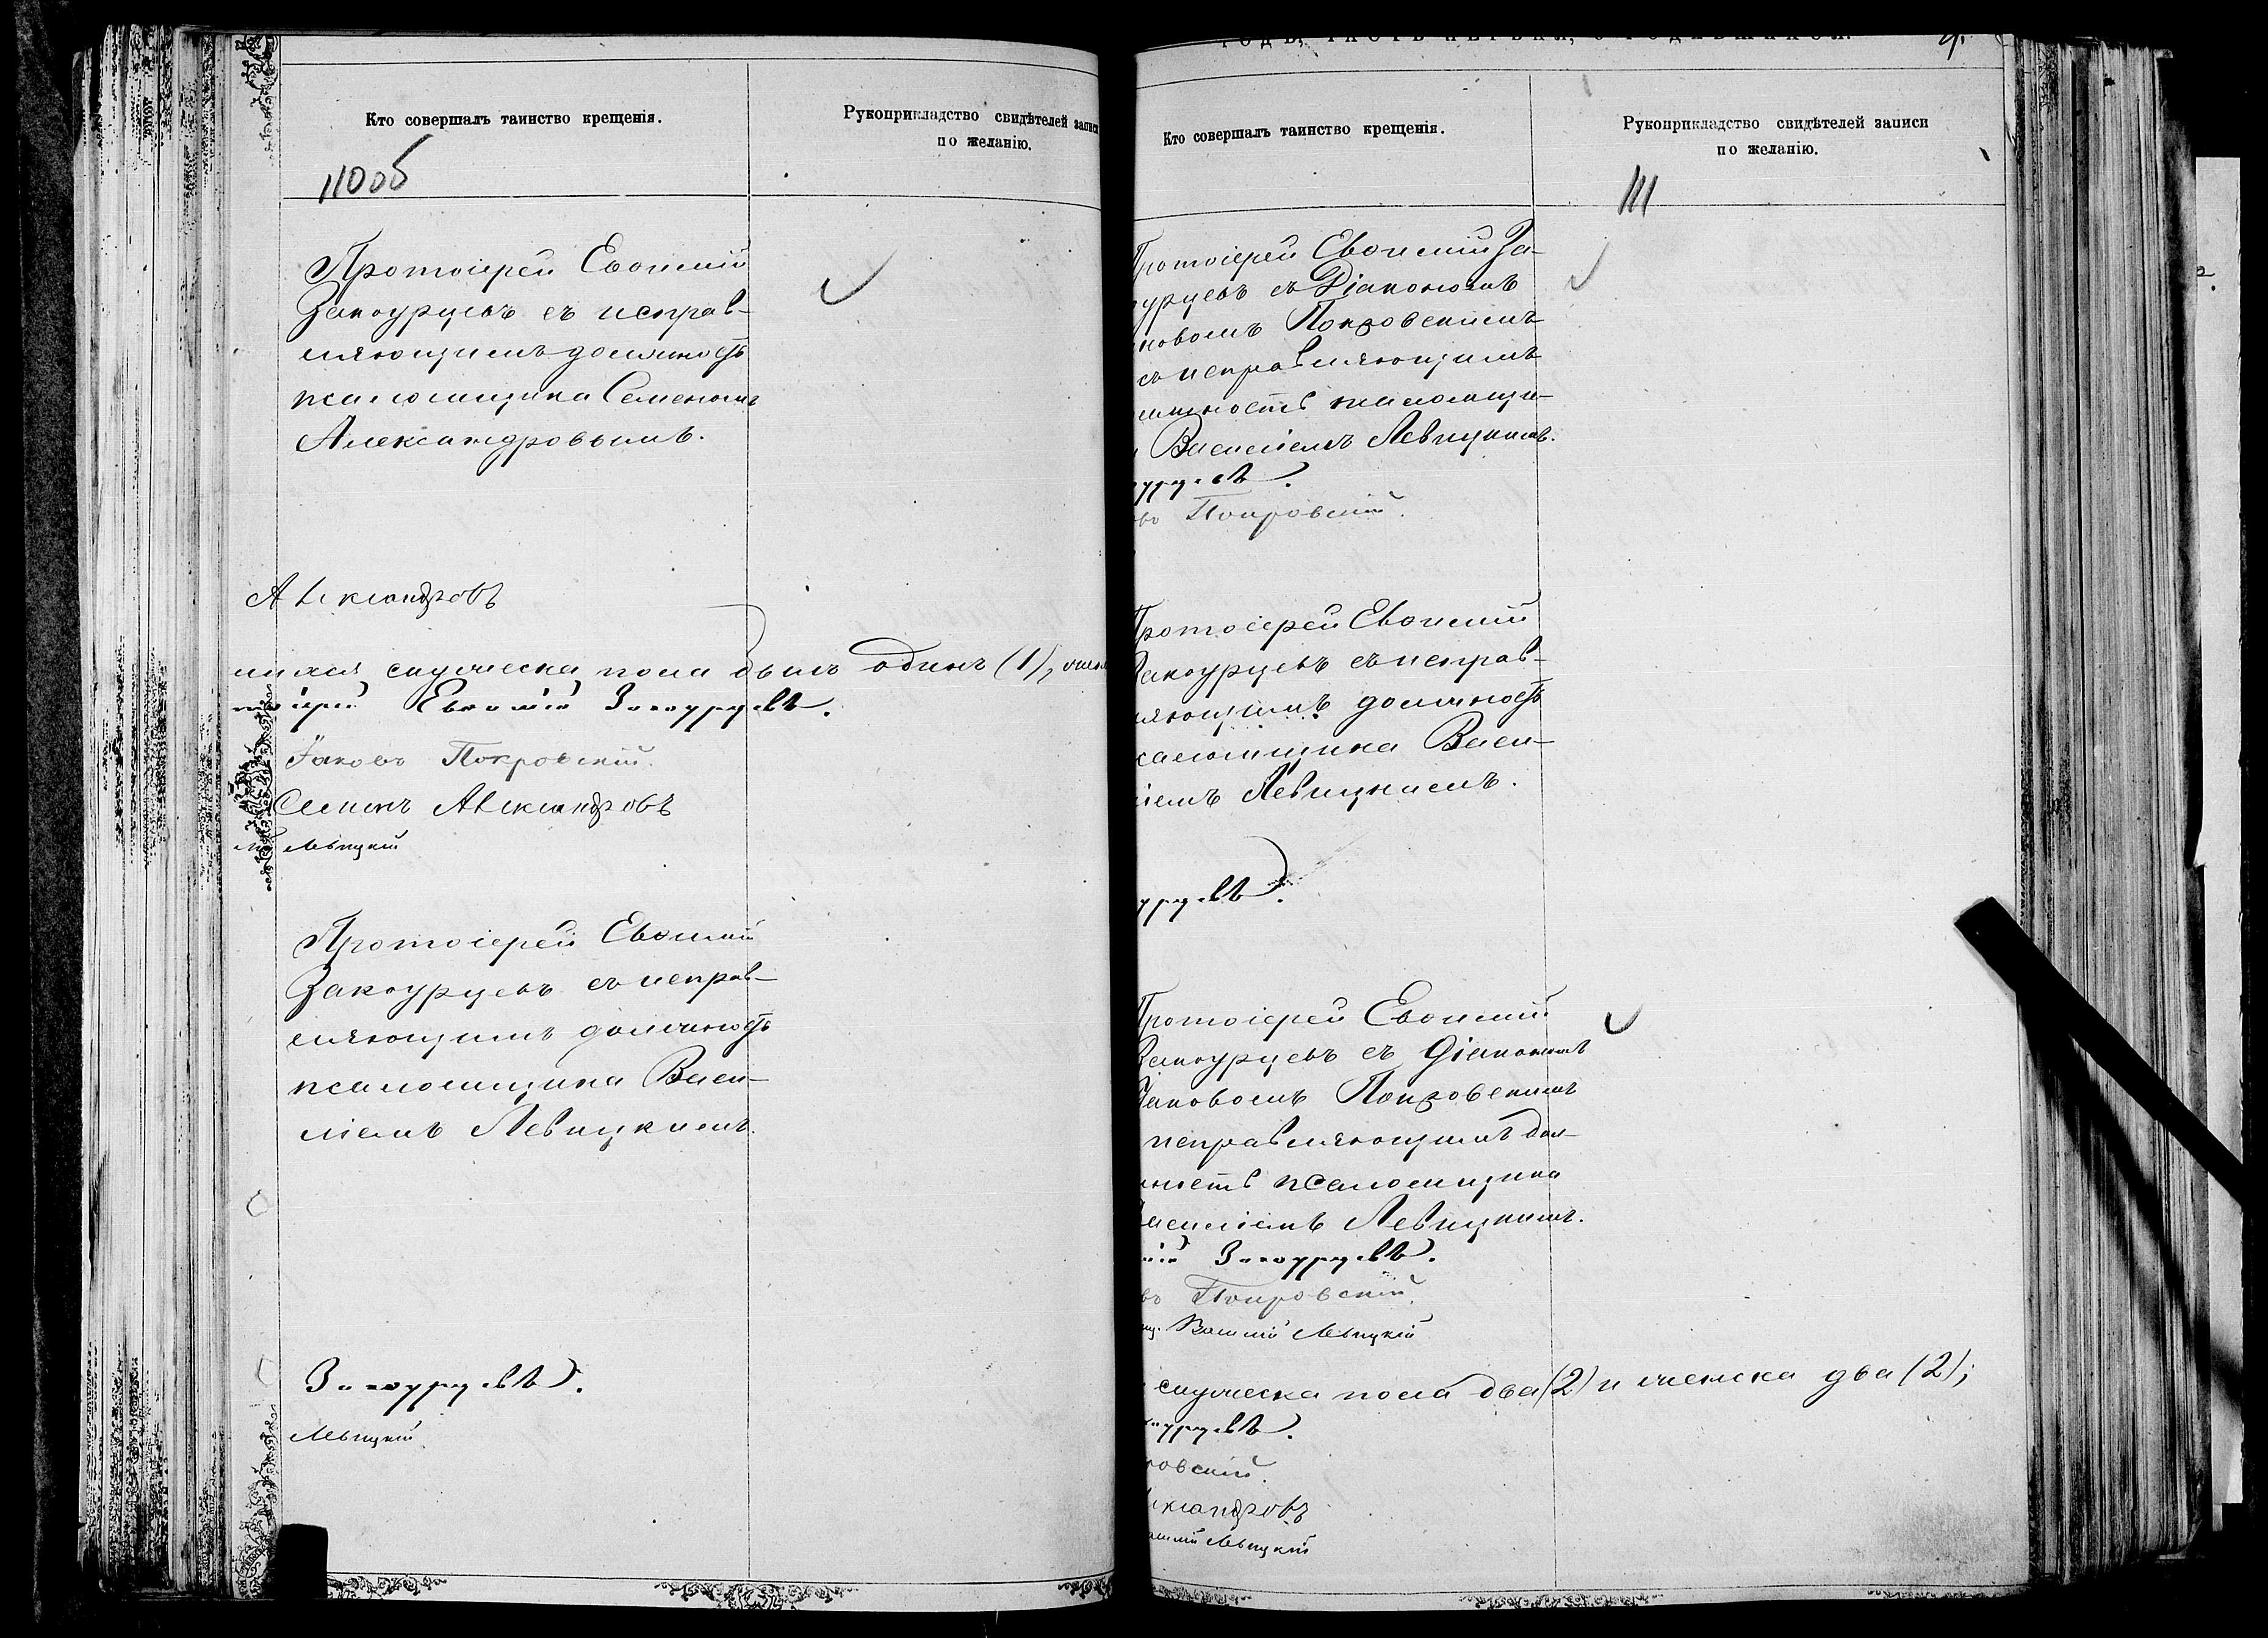 Кто совершалъ таинство крещенія.
Рукоприкладство свидѣтелей записи
по желанію.
110об
Протоіерей Евѳимій
Закоурцевъ съ исправ-
ляющимъ должность
псаломщика Семеномъ
Александровымъ.
Александровъ
мужеска пола былъ одинъ (1),
Евѳимій Закоурцевъ.
Іаковъ Покровскій.
Семенъ Александровъ
Левицкій
Протоіерей Евѳимій
Закоурцевъ съ исправ-
ляющимъ должность
псаломщика Васи-
ліемъ Левицкимъ.
Закоурцевъ.
Левицкій
годъ, часть первая, о родившихся.
Кто совершалъ таинство крещенія.
Рукоприкладство свидѣтелей записи
по желанію.
111
Протоіерей Евѳимій За-
урцевъ съ Діакономъ
ковомъ Покровскимъ
съ исправляющимъ
лжность псаломщи-
Василіемъ Левицкимъ.
урцевъ.
въ Покровскій.
Протоіерей Евѳимій
Закоурцевъ съ исправ-
ляющимъ должность
саломщика Васи-
ліемъ Левицкимъ.
урцевъ.
Протоіерей Евѳимій
Закоурцевъ съ Діакономъ
Іаковомъ Покровскимъ
исправляющимъ дол-
жность псаломщика
асиліемъ Левицкимъ.
мій Закоурцевъ.
въ Покровскій.
Василій Левицкій
мужеска пола два (2) и женска два (2);
оурцевъ.
ровскій.
лександровъ
асилій Левицкій